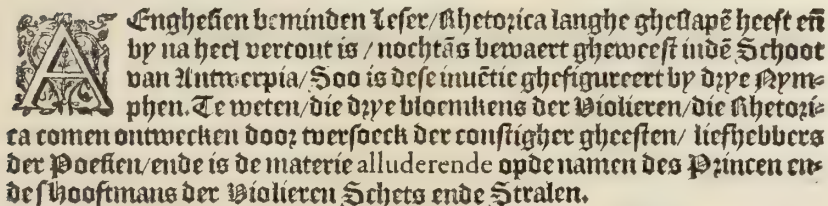 AEnghesien beminden Leser/Rhetorica langhe gheslapē heeft eñ
by na heel vertout is / nochtās bewaert gheweest indē Schoot
van Antwerpia/Soo is dese inuētie ghefigureert by drye Nym-
phen. Te weten/die drye bloemkens der Violieren/die Rhetori-
ca comen ontwecken door tversoeck der constigher gheesten/ liefhebbers
der Poesien/ende is de materie alluderende opde namen des Princen en-
de shooftmans der Violieren Schets ende Stralen.